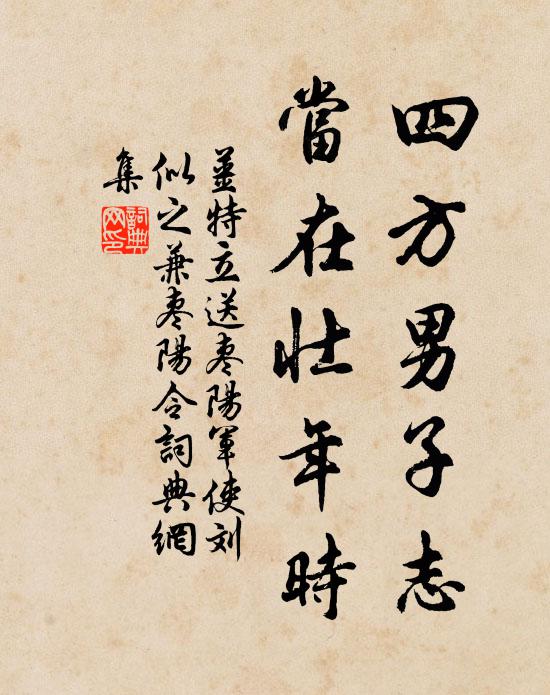 四方男子志
當在壯年時
姜特立送枣陽軍使刘
似之兼枣陽令詞典網
集
詞典
网印